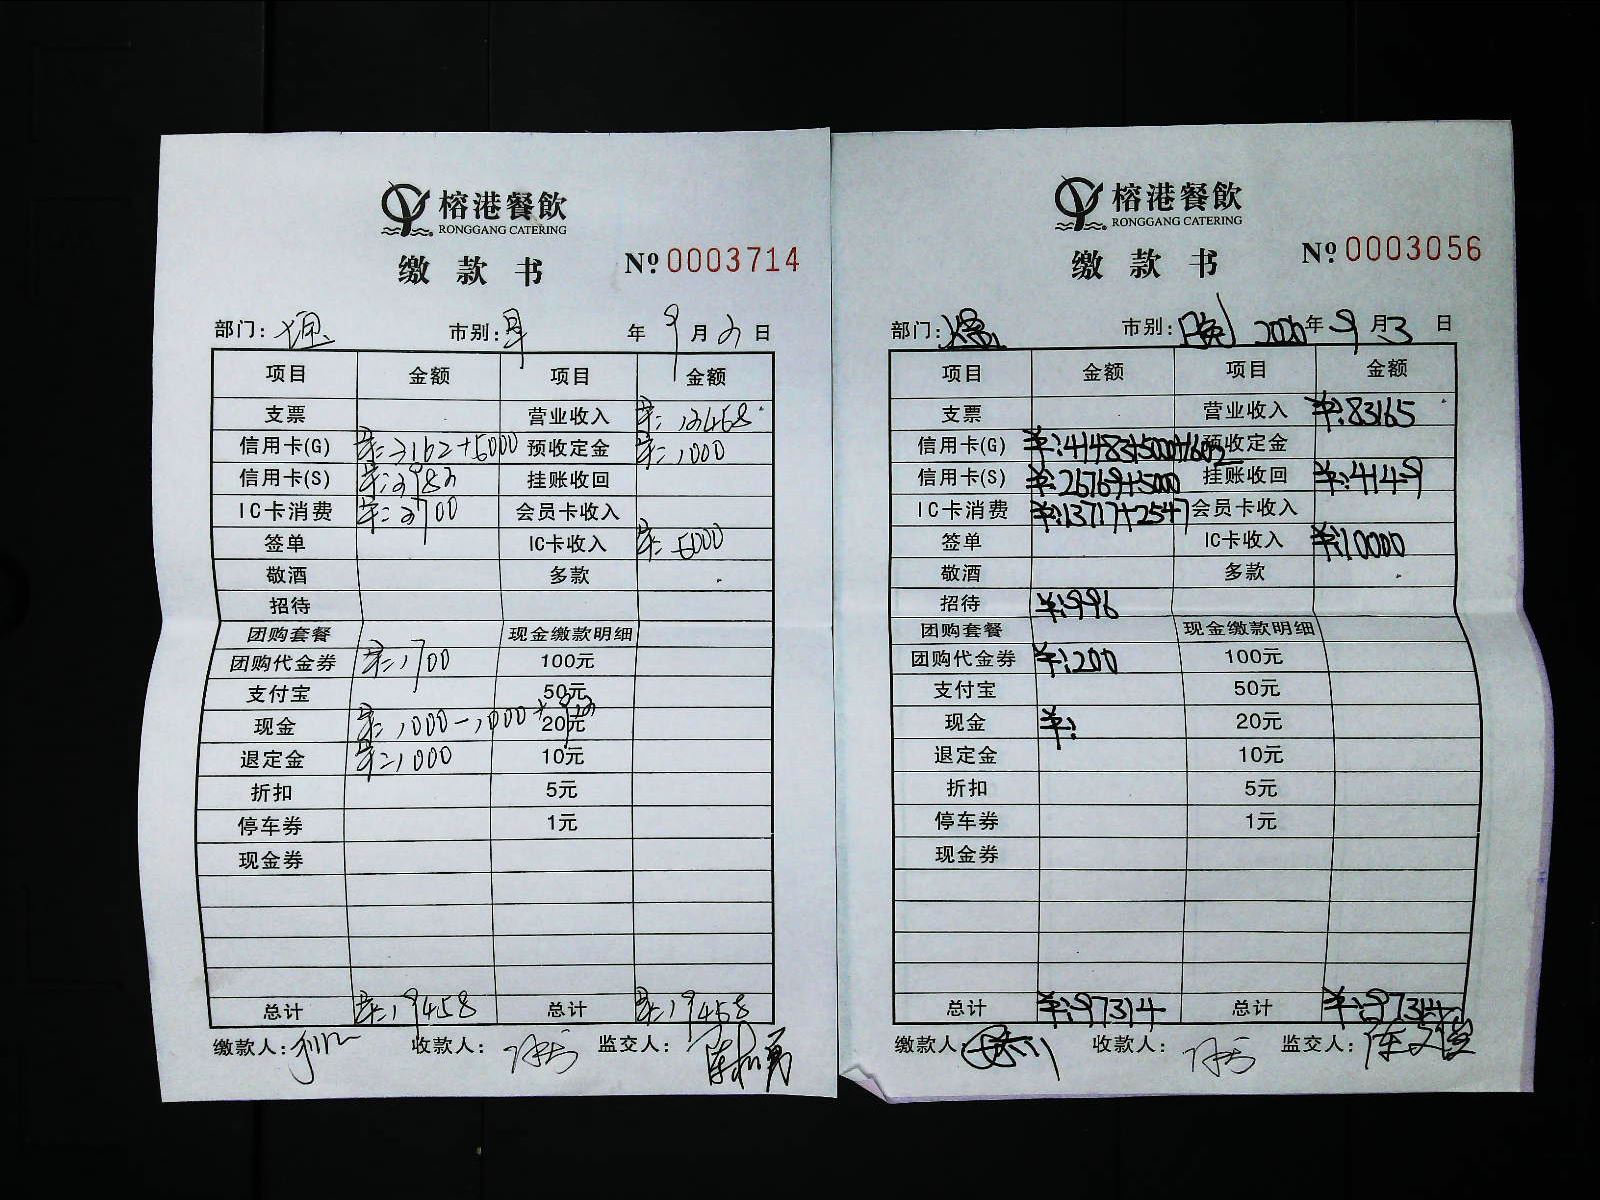 榕港餐飲
RONGGANG CATERING
缴款书 №0003714
部门: 市别: 年 9月2日
项目 金额 项目 金额
支票 营业收入 羊:13458
信用卡(G) 羊:3162+5000 预收定金 羊:1000
信用卡(S) 挂账收回
IC卡消费 羊:2700 会员卡收入
签单 IC卡收入 羊:5000
敬酒 多款
招待
团购套餐 现金缴款明细
团购代金券 羊:1700 100元
支付宝 50元
现金 羊:1000-1000+ 20元
退定金 羊:1000 10元
折扣 5元
停车券 1元
现金券
总计 羊:19458 总计 羊:19458
缴款人: 收款人: 监交人:
榕港餐飲
RONGGANG CATERING
缴款书 №0003056
部门: 市别: 晚 2020年9月3日
项目 金额 项目 金额
支票 营业收入 羊:83165
信用卡(G) 羊:41483+5000+1602 预收定金
信用卡(S) 羊:26769+5000 挂账收回 羊:4149
IC卡消费 羊:13717+2547 会员卡收入
签单 IC卡收入 羊:10000
敬酒 多款
招待 羊:996
团购套餐 现金缴款明细
团购代金券 羊:200 100元
支付宝 50元
现金 羊: 20元
退定金 10元
折扣 5元
停车券 1元
现金券
总计 羊:97314 总计 羊:97314
缴款人: 收款人: 监交人: